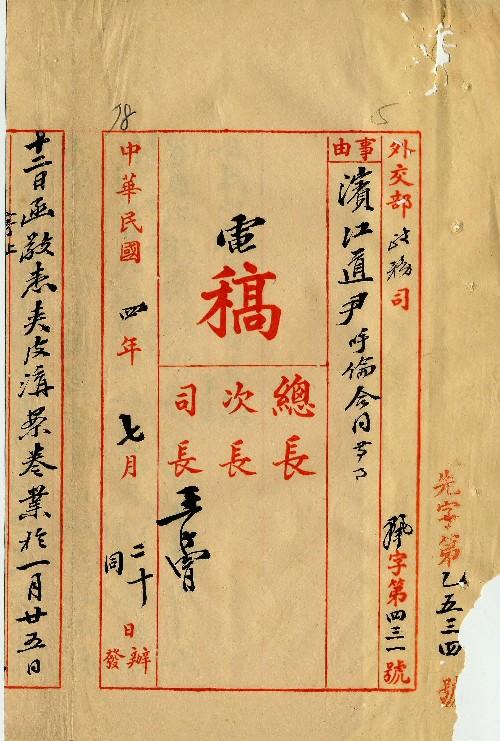 先字第乙五三四號
外交部政務司
字第四三一號
事由
濱江道尹呼倫
電
稿
總長
次長
司長
中華民國四年七月二十日辦
同 發
十二日函敬悉夾皮溝案卷業於一月廿五日